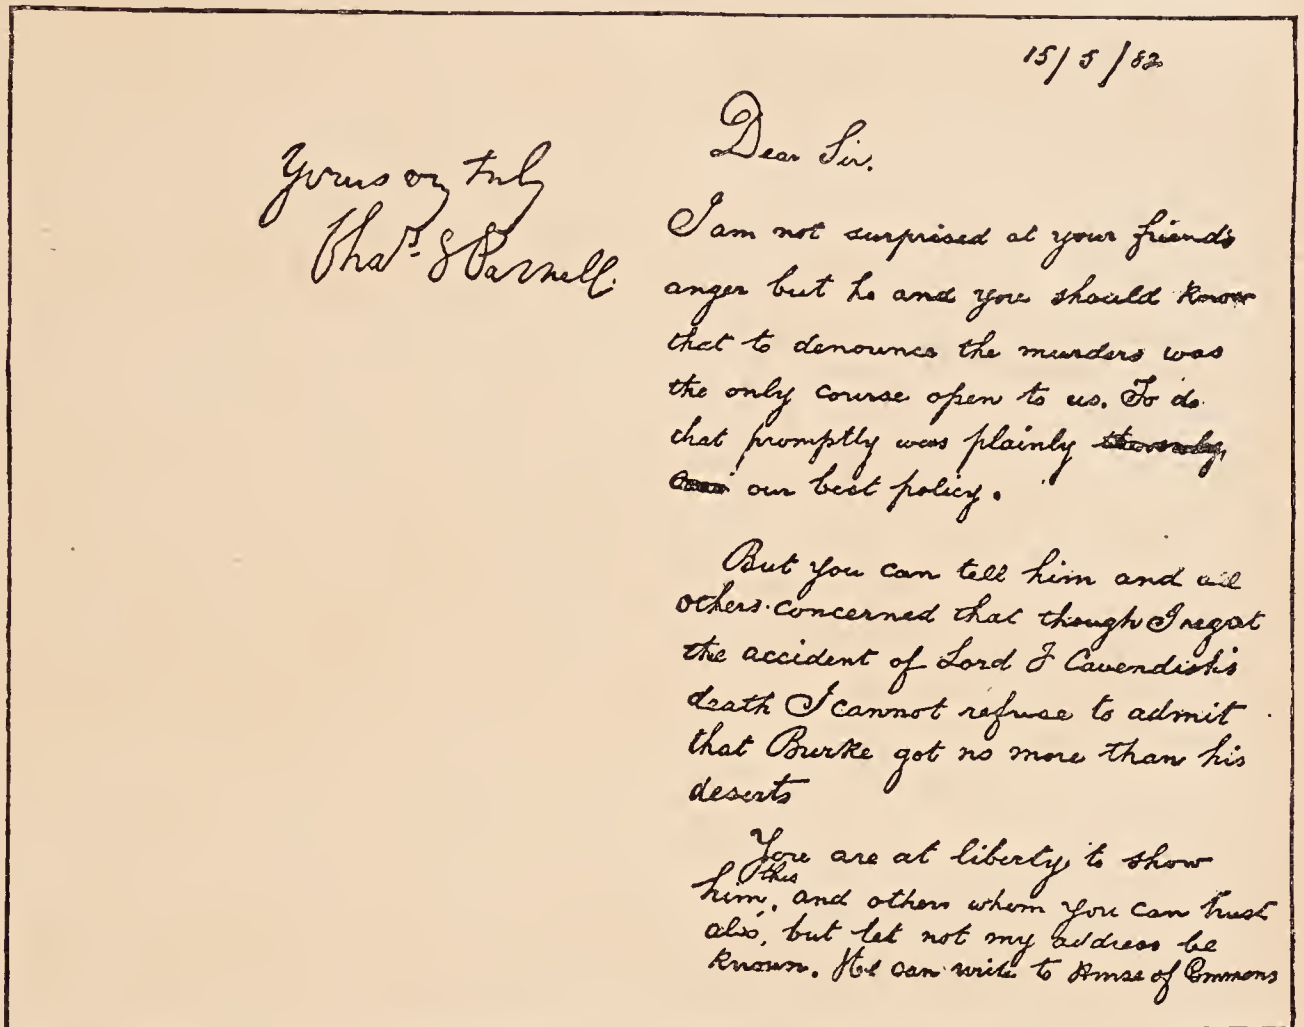 15/5/82
Dear Sir.
I am not surprised at your friend's
anger but he and you should know
that to denounce the murders was
the only course open to us. To do
that promptly was plainly the only
our best policy.
But you can tell him and all
others concerned that though I regret
the accident of Lord F Cavendish's
death I cannot refuse to admit
that Burke got no more than his
deserts
You are at liberty to show
him this, and others whom you can trust
also, but let not my address be
known. He can write to House of Commons
Yours very truly
Chas. S Parnell.